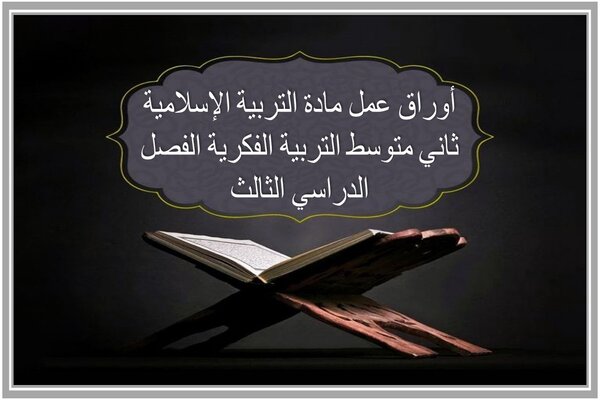 أوراق عمل مادة التربية الإسلامية
ثاني متوسط التربية الفكرية الفصل
الدراسي الثالث